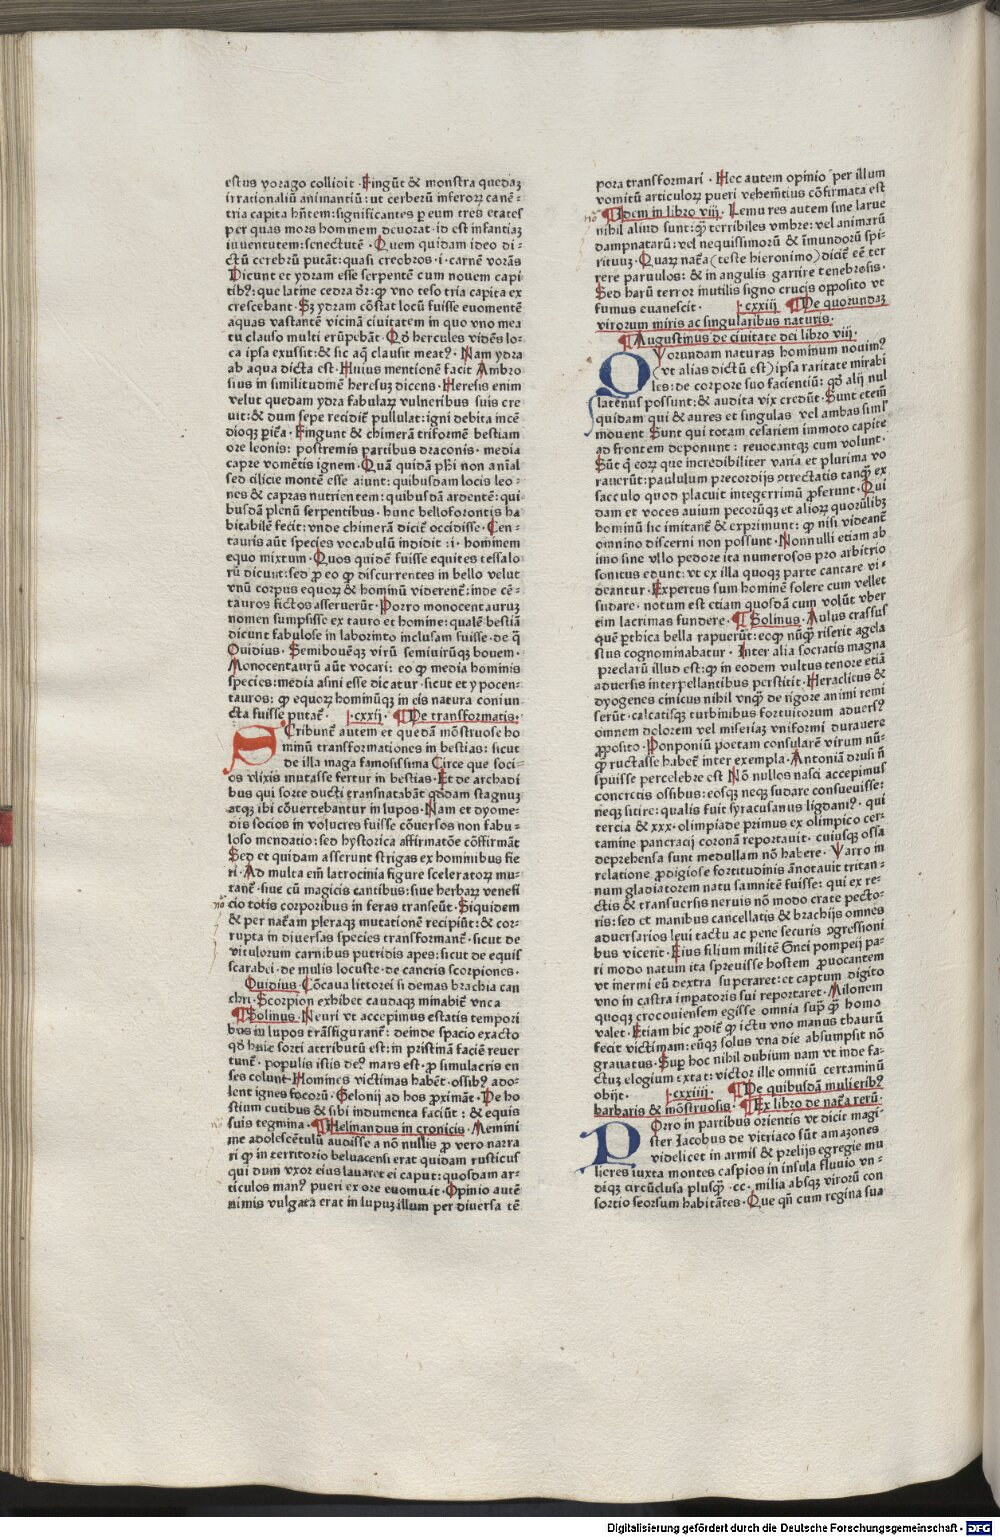 estus vorago collidit · Fingūt & monstra quedaꝫ
irrationaliū animantiū: ut cerberū inferoꝝ canē-
tria capita hn̄tem: significantes p eum tres etates
per quas mors hominem deuorat · id est infantiaꝫ
iuuentutem: senectutē · Quem quidam ideo di-
ctū cerebrū putāt: quasi creobros · i · carnē vorās
Dicunt et ydram esse serpentē cum nouem capi
tibꝫ: que latine cedra dr̄: qꝫ vno ceso tria capita ex
crescebant · Sꝫ ydram cōstat locū fuisse euomentē
aquas vastantē vicinā ciuitatem in quo vno mea
tu clauso multi erūpebāt · Qd̄ hercules vidēs lo-
ca ipsa exussit: & sic aq̄ clausit meatꝰ · Nam ydra
ab aqua dicta est · Huius mentionē facit Ambro
sius in similitudinē heresuꝫ dicens · Heresis enim
velut quedam ydra fabulaꝝ vulneribus suis cre
uit: & dum sepe recidit̄ pullulat: igni debita incē
dioqꝫ pit̄a · Fingunt & chimerā triformē bestiam
ore leonis: postremis partibus draconis · media
capre vomētis ignem · Quā quidā pħi non aīal
sed cilicie montē esse aiunt: quibusdam locis leo-
nes & capras nutrientem: quibusdā ardentē: qui-
busdā plenū serpentibus · hunc belloforontis ha
bitabilē fecit: vnde chimerā dicit̄ occidisse · Cen-
tauris aūt species vocabulū indidit : i · hominem
equo mixtum · Quos quidē fuisse equites tessalo
rū dicunt: sed ꝓ eo ꝙ discurrentes in bello velut
vnū corpus equoꝝ & hominū viderent̄: inde cē-
tauros fictos asseruerūt · Porro monocentauruꝫ
nomen sumpsisse ex tauro et homine: qualē bestiā
dicunt fabulose in laborinto inclusam fuisse · de q̄
Ouidius · Semibouēqꝫ virū semiuirūqꝫ bouem ·
Monocentaurū aūt vocari: eo ꝙ media hominis
species: media asini esse dicatur · sicut et ypocen-
tauros: ꝙ equoꝝ hominūqꝫ in eis natura coniun-
cta fuisse putat̄ · cxxij · De transformatis ·
SCribunt̄ autem et quedā mōstruose ho
minū transformationes in bestias: sicut
de illa maga famosissima Circe que soci-
os vlixis mutasse fertur in bestias · Et de archadi
bus qui sorte ducti transnatabāt qōdam stagnuꝫ
atqꝫ ibi cōuertebantur in lupos · Nam et dyome-
dis socios in volucres fuisse cōuersos non fabu-
loso mendatio: sed hystorica affirmatōe cōffirmāt
Sed et quidam asserunt strigas ex hominibus fie
ri · Ad multa em̄ latrocinia figure sceleratoꝝ mu-
tant̄ · siue cū magicis cantibus: siue herbaꝝ venefi
cio totis corporibus in feras transeūt · Siquidem
& per nat̄am pleraqꝫ mutationē recipiūt: & cor-
rupta in diuersas species transformant̄ · sicut de
vitulorum carnibus putridis apes: sicut de equis
scarabei · de mulis locuste · de cancris scorpiones ·
Ouidius · Cōcaua littorei si demas brachia can
chri · Scorpion exhibet caudaqꝫ minabit̄ vnca
Solinus · Neuri vt accepimus estatis tempori
bus in lupos trāsfigurant̄ : deinde spacio exacto
qd̄ huic sorti attributū est: in pristinā faciē reuer
tunt̄ · populis istis deꝰ mars est · ꝓ simulacris en
ses colunt · Homines victimas habēt · ossibꝫ ado-
lent ignes focorū · Gelonij ad hos ꝓximāt · De ho
stium cutibus & sibi indumenta faciūt : & equis
suis tegmina · Helinandus in cronicis · Memini
me adolescētulū audisse a nō nullis ꝓ vero narra
ri ꝙ in territorio beluacensi erat quidam rusticus
qui dum vxor eius lauaret ei caput: quosdam ar-
ticulos manꝰ pueri ex ore euomuit · Opinio autē
nimis vulgata erat in lupuꝫ illum per diuersa tē
pora transformari · Hec autem opinio per illum
vomitū articuloꝝ pueri vehemētius cōfirmata est
Idem in libro viij · Lemures autem siue larue
nihil aliud sunt: ꝙ terribiles vmbre: vel animarū
dampnatarū: vel nequissimorū & īmundorū spi-
rituuꝫ · Quaꝝ nat̄a (teste hieronimo) dicit̄ eē ter
rere paruulos: & in angulis garrire tenebrosis ·
Sed harū terror inutilis signo crucis opposito vt
fumus euanescit · cxxiij De quorundaꝫ
virorum miris ac singularibus naturis ·
Augustinus de ciuitate dei libro viij ·
QVorundam naturas hominum nouimꝰ
(vt alias dictū est) ipsa raritate mirabi
les: de corpore suo facientiū: qd̄ alij nul
latenus possunt: & audita vix credūt · Sunt etem̄
quidam qui & aures et singulas vel ambas siml̓
mouent Sunt qui totam cesariem immoto capite
ad frontem deponunt : reuocantqꝫ cum volunt ·
Sūt q̄ eoꝝ que incredibiliter varia et plurima vo
rauerūt: paululum precordijs ꝯtrectatis tanqꝫ ex
sacculo quod placuit integerrimū ꝓferunt · Qui
dam et voces auium pecorūqꝫ et alioꝝ quorūlibꝫ
hominū sic imitant̄ & exprimunt: ꝙ nisi videant̄
omnino discerni non possunt · Nonnulli etiam ab
imo sine vllo pedore ita numerosos pro arbitrio
sonitus edunt: vt ex illa quoqꝫ parte cantare vi-
deantur · Expertus sum hominē solere cum vellet
sudare · notum est etiam quosdā cum volūt vber
tim lacrimas fundere · Solinus · Aulus crassus
quē ꝑthica bella rapuerūt: eoqꝫ nūqꝫ riserit agela
stus cognominabatur · Inter alia socratis magna
preclarū illud est: ꝙ in eodem vultus tenore etiā
aduersis interpellantibus perstitit · Heraclitus &
dyogenes cinicus nihil vnqꝫ de rigore animi remi
serūt · calcatisqꝫ turbinibus fortuitorum aduersꝰ
omnem dolorem vel miseriaꝫ vniformi durauere
ꝓposito · Ponponiū poetam consularē virum nū-
qꝫ ructasse habet̄ inter exempla · Antoniā drusi n̄
spuisse percelebre est Nō nullos nasci accepimus
concretis ossibus: eosqꝫ neqꝫ sudare consueuisse:
neqꝫ sitire: qualis fuit syracusanus ligdaniꝰ · qui
tercia & xxx · olimpiade primus ex olimpico cer-
tamine pancracij coronā reportauit · cuiusqꝫ ossa
deprehensa sunt medullam nō habere · Varro in
relatione ꝓdigiose fortitudinis ānotauit tritan-
num gladiatorem natu samnitē fuisse: qui ex re-
ctis & transuersis neruis nō modo crate pecto-
ris: sed et manibus cancellatis & brachijs omnes
aduersarios leui tactu ac pene securis ꝯgressioni
bus vicerit · Eius filium militē Gnei pompeij pa-
ri modo natum ita spreuisse hostem ꝓuocantem
vt inermi eū dextra superaret: et captum digito
vno in castra imp̄atoris sui reportaret · Milonem
quoqꝫ crocouiensem egisse omnia supꝫ ꝙ homo
valet · Etiam hic ꝓdit̄ ꝙ ictu vno manus thaurū
fecit victimam: eūqꝫ solus vna die absumpsit nō
grauatus · Sup hoc nihil dubium nam vt inde fa-
ctuꝫ elogium extat: victor ille omniū certaminū
obijt · cxxiiij · De quibusdā mulieribꝫ
barbaris & mōstruosis · Ex libro de nat̄a rerū ·
POrro in partibus orientis vt dicit magi-
ster Jacobus de vitriaco sūt amazones
videlicet in armis & prelijs egregie mu
lieres iuxta montes caspios in insula fluuio vn-
diqꝫ circūclusa plusqꝫ · cc · milia absqꝫ virorū con
sortio seorsum habitātes · Que qn̄ cum regina sua
Digitalisierung gefördert durch die Deutsche Forschungsgemeinschaft - DFG